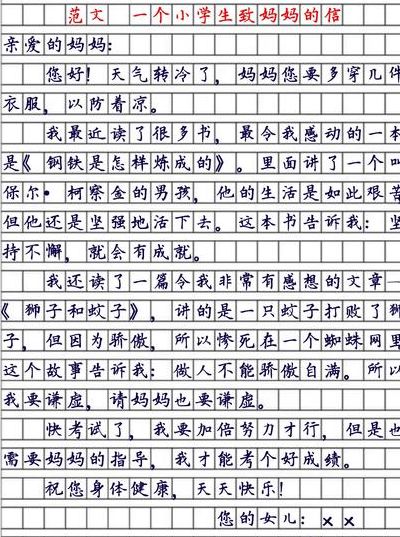 范文 一个小学生致妈妈的信
亲爱的妈妈：
您好！天气转冷了，妈妈您要多穿几件
衣服，以防着凉。
我最近读了很多书，最令我感动的一本
是《钢铁是怎样炼成的》。里面讲了一个叫
保尔•柯察金的男孩，他的生活是如此艰苦
但他还是坚强地活下去。这本书告诉我：坚
持不懈，就会有成就。
我还读了一篇令我非常有感想的文章—
《狮子和蚊子》，讲的是一只蚊子打败了狮
子，但因为骄傲，所以惨死在一个蜘蛛网里
这个故事告诉我：做人不能骄傲自满。所以
我要谦虚，请妈妈也要谦虚。
快考试了，我要加倍努力才行，但是也
需要妈妈的指导，我才能考个好成绩。
祝您身体健康，天天快乐！
您的女儿：××